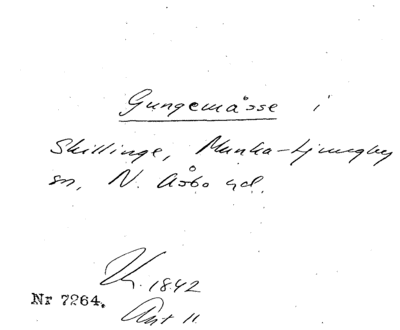 Gungemåsse i
Skillinge, Munka-Ljungby
sn, N. Åsbo hd.
K. 1842
Nr 7264.
Ant 11